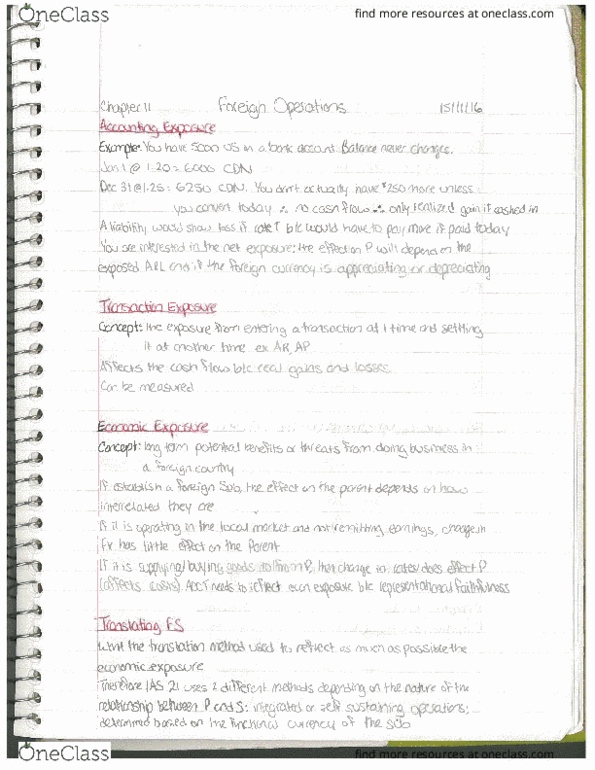 OneClass
find more resources at oneclass.com
Chapter 11 Foreign Operations 15/11/16
Accounting Exposure
Example: You have 5000 US in a bank account. Balance never changes.
Jan 1 @ 1.20 = 6000 CDN
Dec 31 @ 1.25 = 6250 CDN. You don't actually have $250 more unless
you convert today ∴ no cash flow ∴ only realized gain if cashed in
A liability would show loss if rate ↑ b/c would have to pay more if paid today
You are interested in the net exposure: the effect on P will depend on the
exposed A&L and if the foreign currency is appreciating or depreciating
Transaction Exposure
Concept: the exposure from entering a transaction at 1 time and settling
it at another time ex AR, AP
Affects the cash flow b/c real gains and losses
Can be measured
Economic Exposure
Concept: long term potential benefits or threats from doing business in
a foreign country
If establish a foreign Sub, the effect on the parent depends on how
interrelated they are
If it is operating in the local market and not remitting earnings, change in
Fx has little effect on the Parent
If it is supplying/buying goods to/from P, then change in rates does effect P
(affects costs). ACCT needs to reflect econ exposure b/c representational faithfulness
Translating FS
Want the translation method used to reflect as much as possible the
economic exposure
Therefore IAS 21 uses 2 different methods depending on the nature of the
relationship between P and S: integrated or self sustaining operations;
determined based on the functional currency of the sub
OneClass
find more resources at oneclass.com